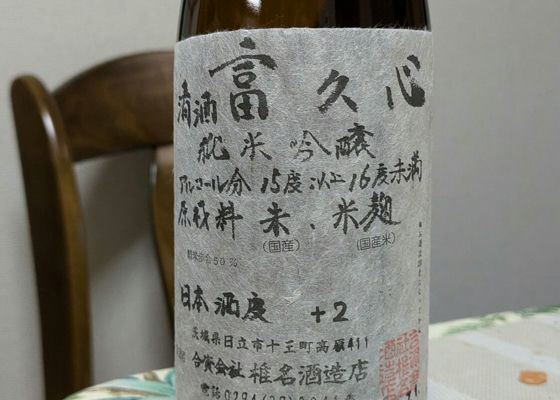 清酒 富久心
純米吟醸
アルコール分 15度以上16度未満
原材料 米、米麹
(国産) (国産米)
精米歩合50%
日本酒度 +2
茨城県日立市十王町高原411
合資会社 椎名酒造店
電話 0294